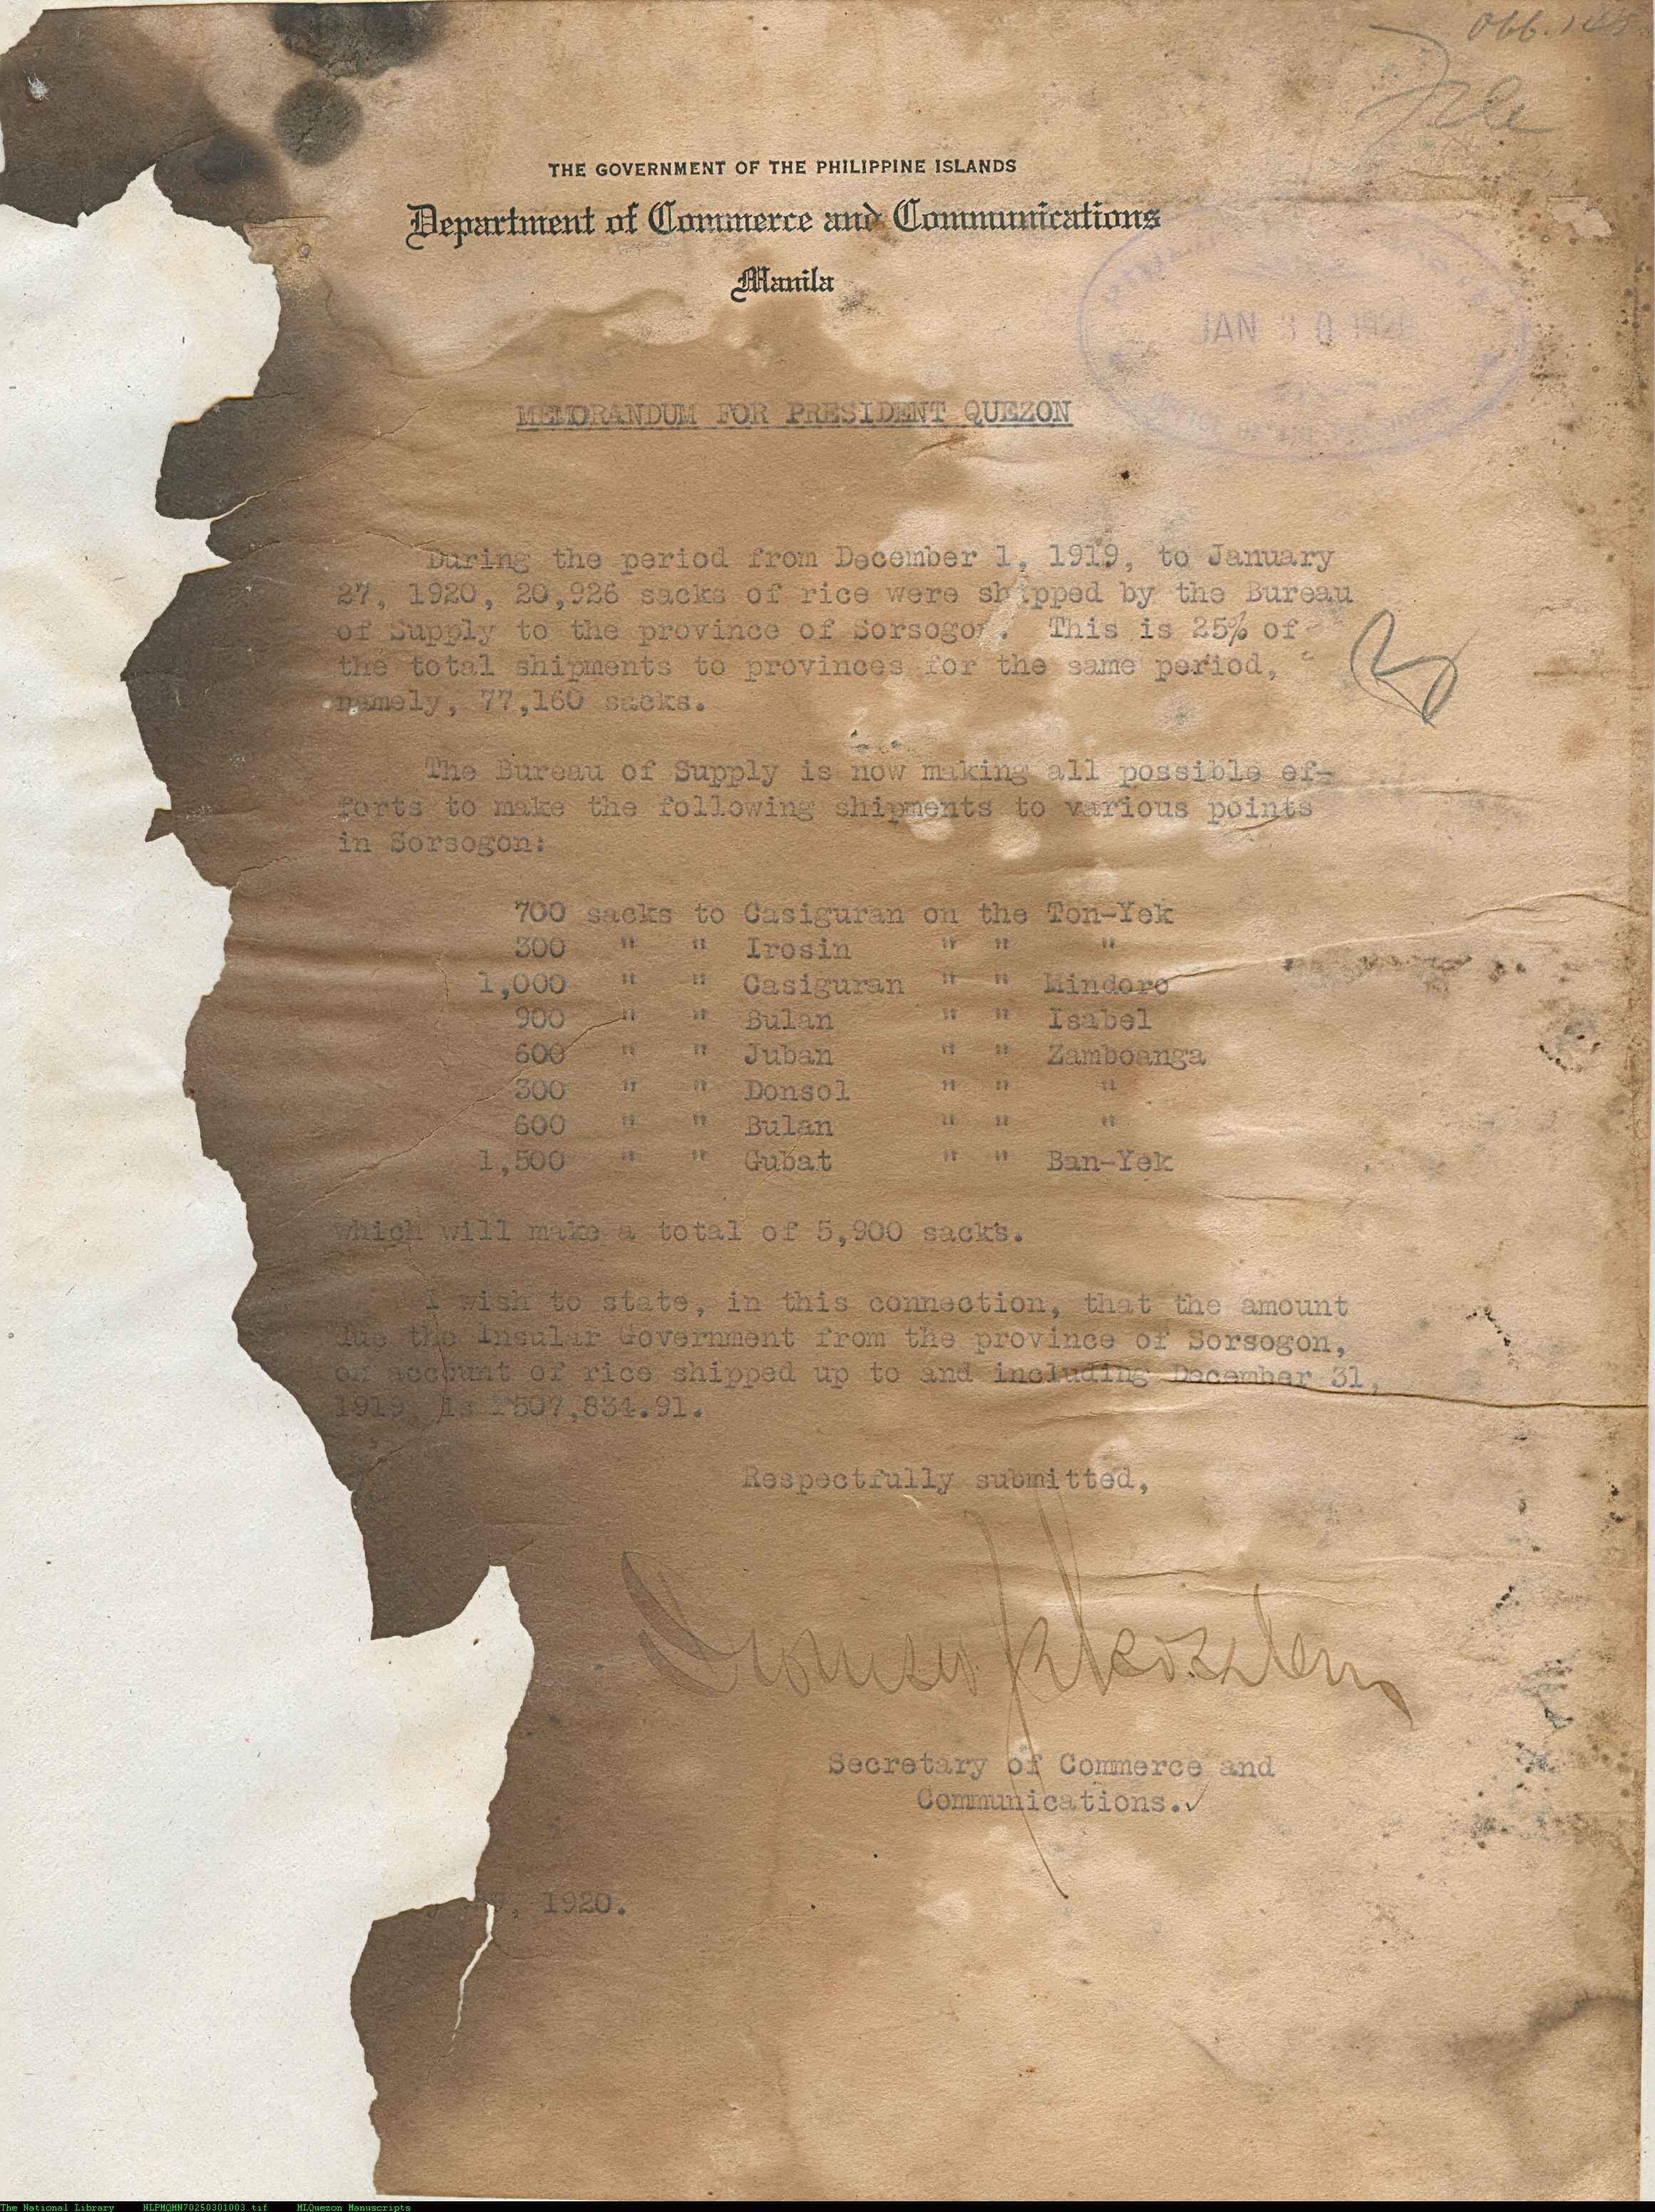 THE GOVERNMENT OF THE PHILIPPINE ISLANDS
Department of Commerce and Communications
Manila
JAN 30 1920
MEMORANDUM FOR PRESIDENT QUEZON
During the period from December 1, 1919, to January
27, 1920, 20,926 sacks of rice were shipped by the Bureau
of Supply to the province of Sorsogon. This is 25% of
the total shipments to provinces for the same period,
namely, 77,160 sacks.
The Bureau of Supply is now making all possible ef-
forts to make the following shipments to various points
in Sorsogon:
700 sacks to Casiguran on the Ton-Yek
300 " " Irosin " " "
1,000 " " Casiguran " " Mindoro
900 " " Bulan " " Isabel
600 " " Juban " " Zamboanga
300 " " Donsol " " "
600 " " Bulan " " "
1,500 " " Gubat " " Ban-Yek
which will make a total of 5,900 sacks.
I wish to state, in this connection, that the amount
due the Insular Government from the province of Sorsogon,
on account of rice shipped up to and including December 31,
1919, is ₱507,834.91.
Respectfully submitted,
Secretary of Commerce and
Communications.
, 1920.
The National Library NLPMQMN70250301003.tif MLQuezon Manuscripts